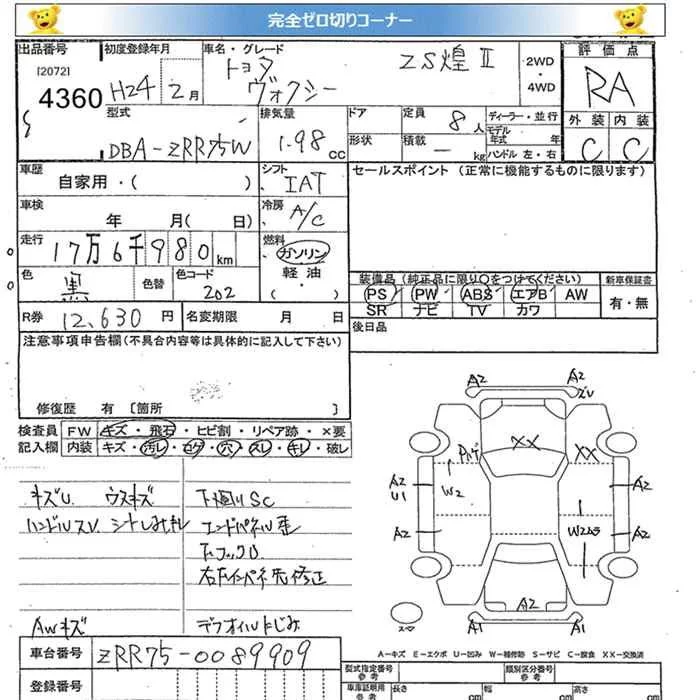 完全ゼロ切りコーナー
出品番号 初度登録年月 車名・グレード 評価点
[2072] トヨタ ZS煌Ⅱ 2WD・4WD
4360 H24 2月 ヴォクシー RA
型式 排気量 ドア 定員 8人 ディーラー・並行 外装 内装
DBA-ZRR75W 1.98 cc 形状 積載 ー kg モデル年式 年 ハンドル 左・右 C C
車歴 自家用・( ) シフト IAT セールスポイント (正常に機能するものに限ります)
車検 年 月( 日) 冷房 A/C
走行 17万6千980km 燃料 ガソリン
軽油
( )
色 黒 色替 色コード 202
装備品 (純正品に限り○をつけてください) 新車保証書
PS PW ABS エアB AW 有・無
SR ナビ TV カワ
R券 12,630円 名変期限 月 日 後日品
注意事項申告欄 (不具合内容等は具体的に記入して下さい)
修復歴 有 〔箇所 〕
検査員 FW キズ・飛石・ヒビ割・リペア跡・×要
記入欄 内装 キズ・汚レ・コゲ・穴・スレ・キレ・破レ
キズU ウスキズ 下廻りSC
ハンドルスレ シートしみキレ エンドパネル歪
下フックD
右左インパネ先修正
AWキズ デフオイルにじみ
A2 A2
ハゲ XX XX
A2 U1 W2 A2
A2 W2 A2
A2
A1 A1
A-キズ E-エクボ U-凹み W-補修跡 S-サビ C-腐食 XX-交換済
車台番号 ZRR75-0089909
登録番号
型式指定番号 参考 類別区分番号 参考
車庫証明用 参考 長さ cm 幅 cm 高さ cm